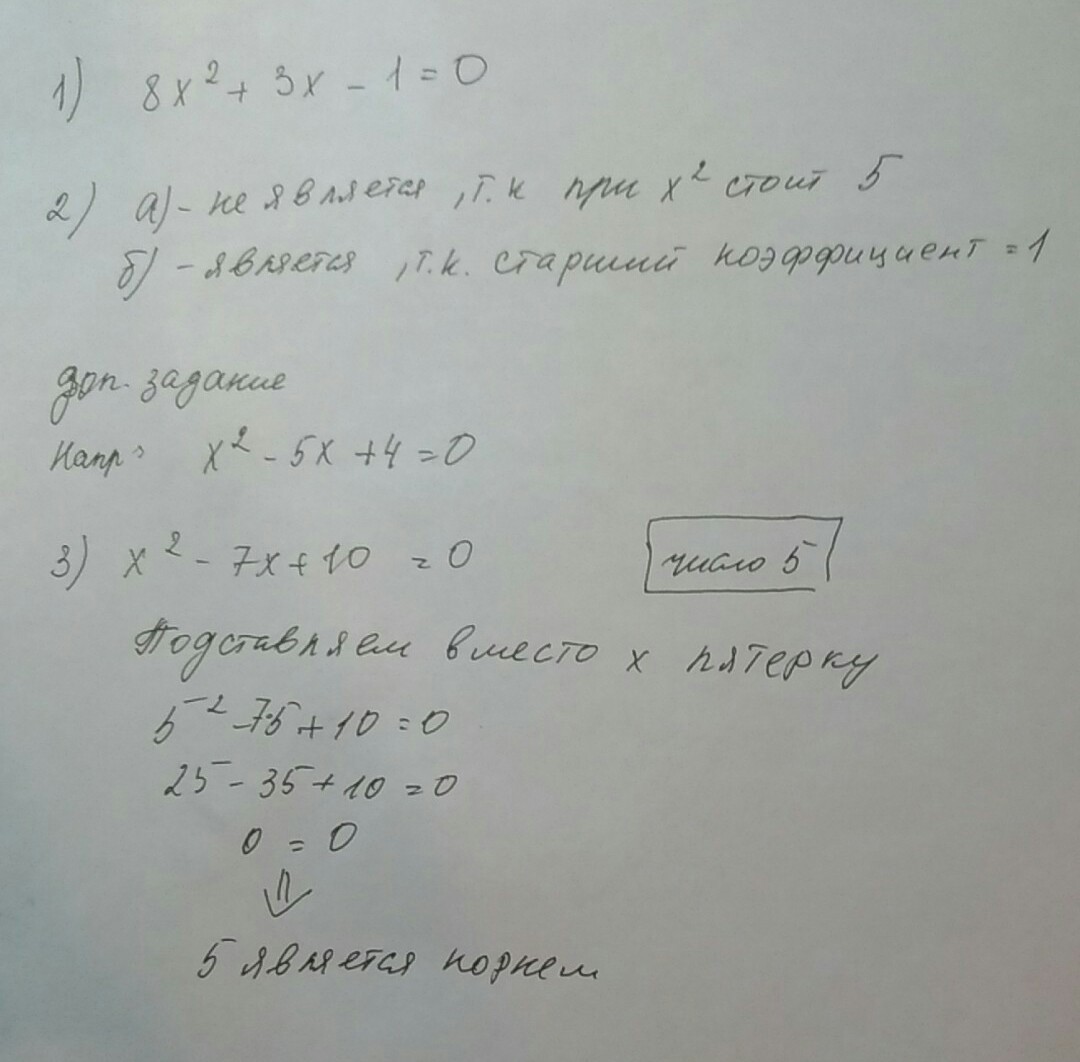 1) 8x² + 3x - 1 = 0
2) а) - не является, т.к при x² стоит 5
б) - является, т.к. старший коэффициент = 1
доп. задание
Напр: x² - 5x + 4 = 0
3) x² - 7x + 10 = 0
число 5
Подставляем вместо x пятерку
5² - 7·5 + 10 = 0
25 - 35 + 10 = 0
0 = 0
⇓
5 является корнем